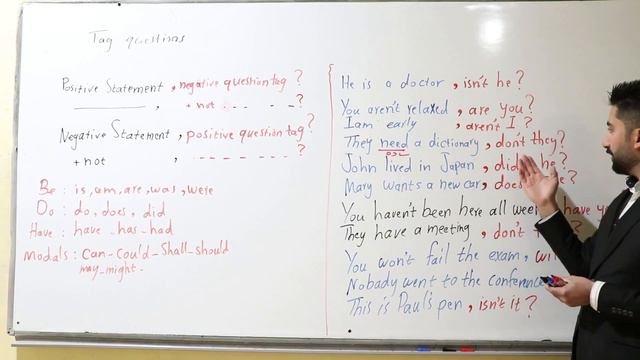 Tag questions
Positive Statement, negative question tag?
, + not ?
Negative Statement, positive question tag?
+ not , ?
Be: is, am, are, was, were
Do: do, does, did
Have: have - has - had
Modals: Can - Could - Shall - should
may - might -
He is a doctor, isn't he?
You aren't relaxed, are you?
I am early, aren't I?
They need a dictionary, don't they?
John lived in Japan, he?
Mary wants a new car,
You haven't been here all have
They have a meeting, don't
You won't fail the exam,
Nobody went to the
This is Paul's pen, isn't it?